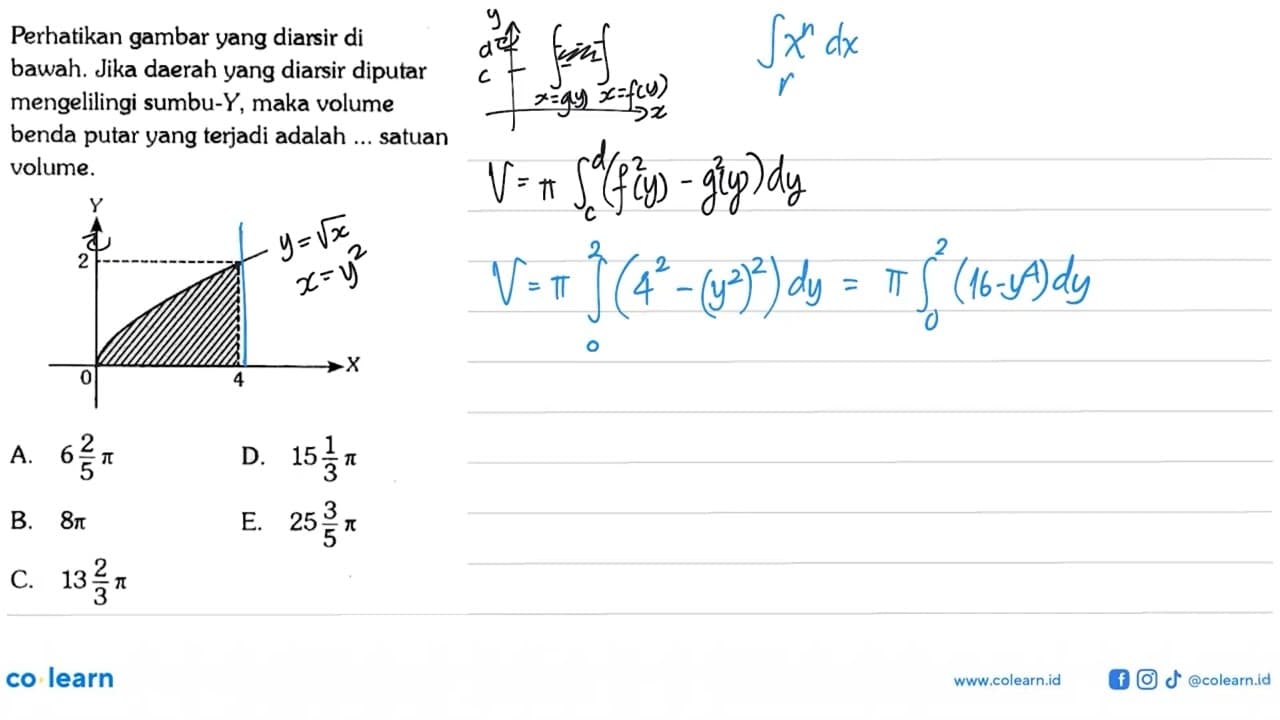 Perhatikan gambar yang diarsir di
bawah. Jika daerah yang diarsir diputar
mengelilingi sumbu-Y, maka volume
benda putar yang terjadi adalah ... satuan
volume.
Y
2
0
4
X
y = √x
x = y²
A. 6 2/5 π
B. 8π
C. 13 2/3 π
D. 15 1/3 π
E. 25 3/5 π
y
d
c
x=g(y) x=f(y)
x
∫xⁿ dx
V = π ∫_c^d (f²(y) - g²(y)) dy
V = π ∫_0^2 (4² - (y²)²) dy = π ∫_0^2 (16 - y⁴) dy
co learn
www.colearn.id
@colearn.id